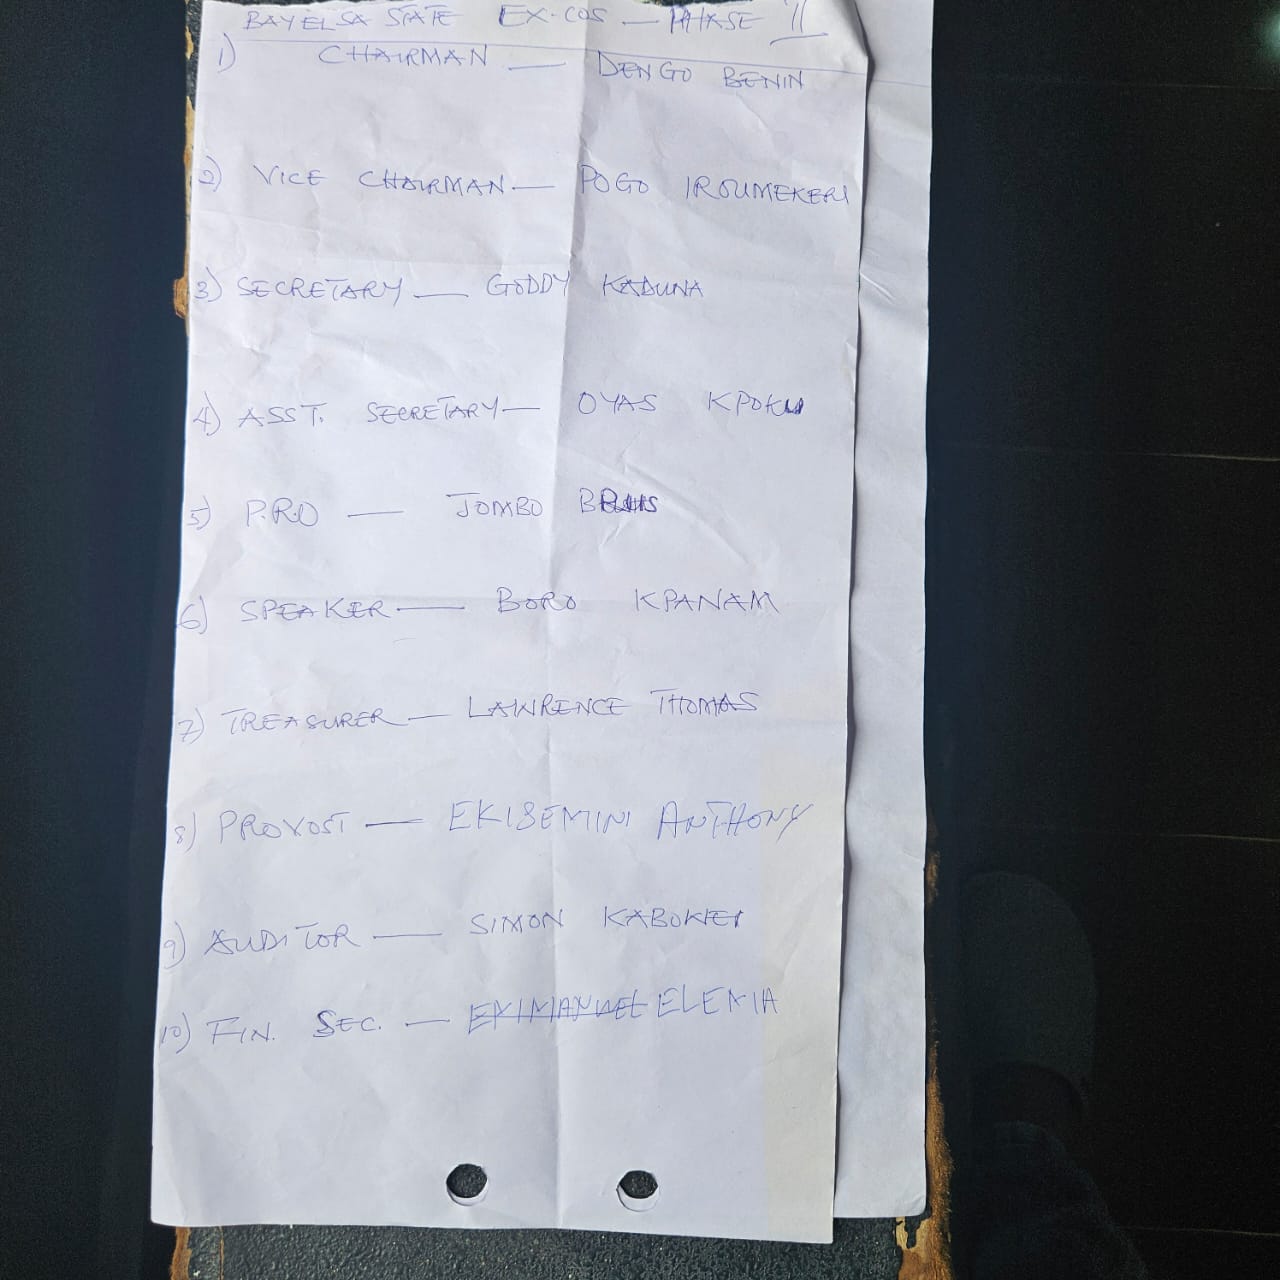 BAYELSA STATE EX-COS — PHASE II
1) CHAIRMAN — DENGO BENIN
2) VICE CHAIRMAN — POGO IROUMEKERI
3) SECRETARY — GODDY KADUNA
4) ASST. SECRETARY — OYAS KPOKU
5) P.R.O — JOMBO
6) SPEAKER — BORO KPANAM
7) TREASURER — LAWRENCE THOMAS
8) PROVOST — EKISEMINI ANTHONY
9) AUDITOR — SIMON KABOWEI
10) FIN. SEC. — ELEXIA